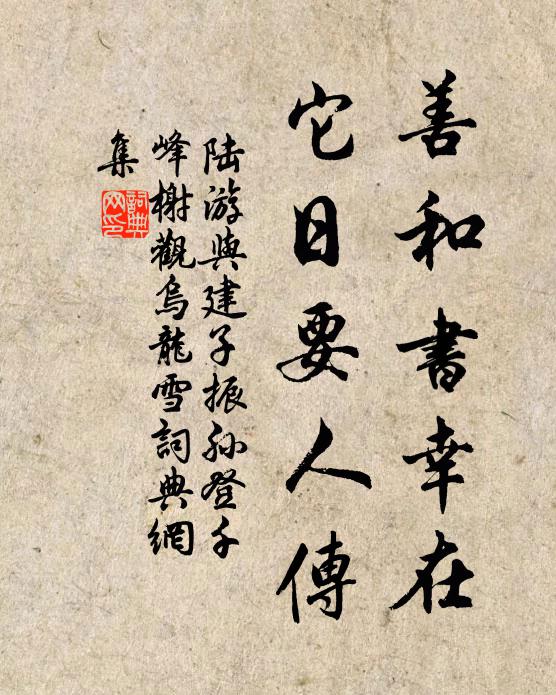 善和書幸在
它日要人傳
陆游與建子振孙登千
峰榭觀烏龍雪詞典網
集
詞典网印